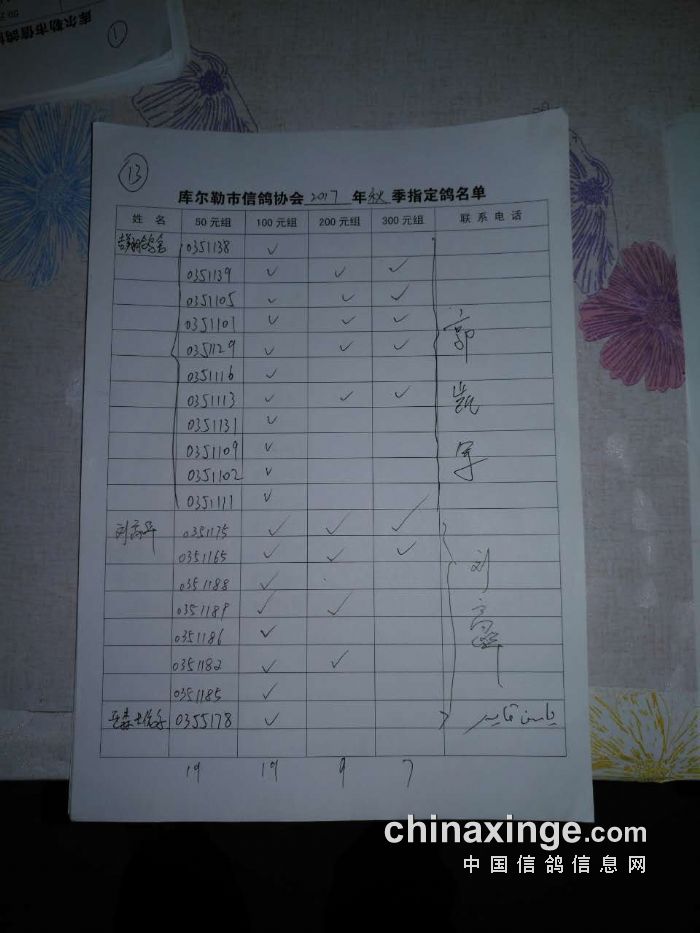 ①
库尔勒市信鸽协
⑬
库尔勒市信鸽协会 2017 年 秋 季指定鸽名单
姓 名 50元组 100元组 200元组 300元组 联系电话
0351138 ✓
0351139 ✓ ✓ ✓
0351105 ✓ ✓ ✓
0351101 ✓ ✓ ✓
0351129 ✓ ✓ ✓
0351116 ✓
0351113 ✓ ✓ ✓
0351131 ✓
0351109 ✓
0351102 ✓
0351111 ✓
郭
凯
军
刘高华 0351175 ✓ ✓ ✓
0351165 ✓ ✓ ✓
0351188 ✓
0351189 ✓ ✓
0351186 ✓
0351182 ✓ ✓
0351185 ✓
刘
高
华
0355178 ✓
19 19 9 7
chinaxinge.com
中国信鸽信息网